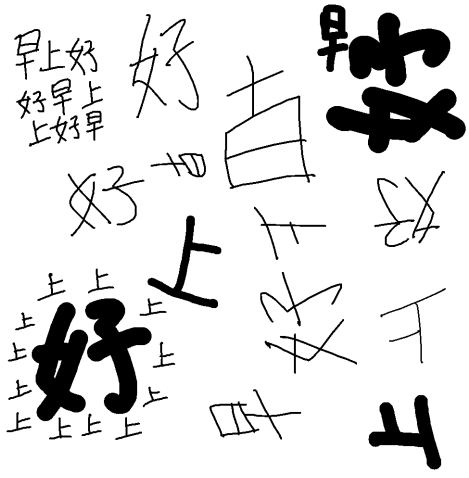 早上好
好早上
上好早
好
早
好
早
好
早
上
上
好
上
上
上
上
上
好
上
上
上
上
上
上
上
上
好
上
早
上